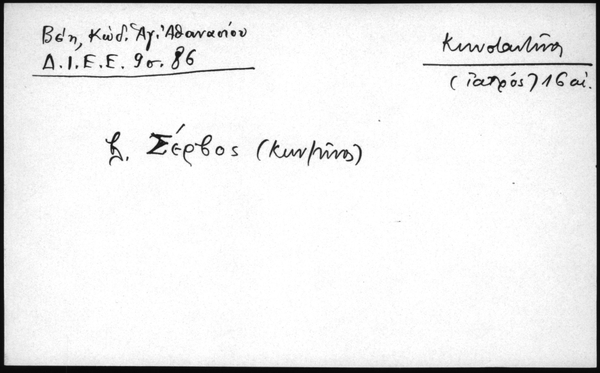 Βέη, Κώδ. Ἁγ. Ἀθανασίου
Δ.Ι.Ε.Ε. 9 σ. 86
Κωνσταντῖνος
(ἰατρός) 16 αἰ.
β. Σέρβος (Κων/τῖνος)